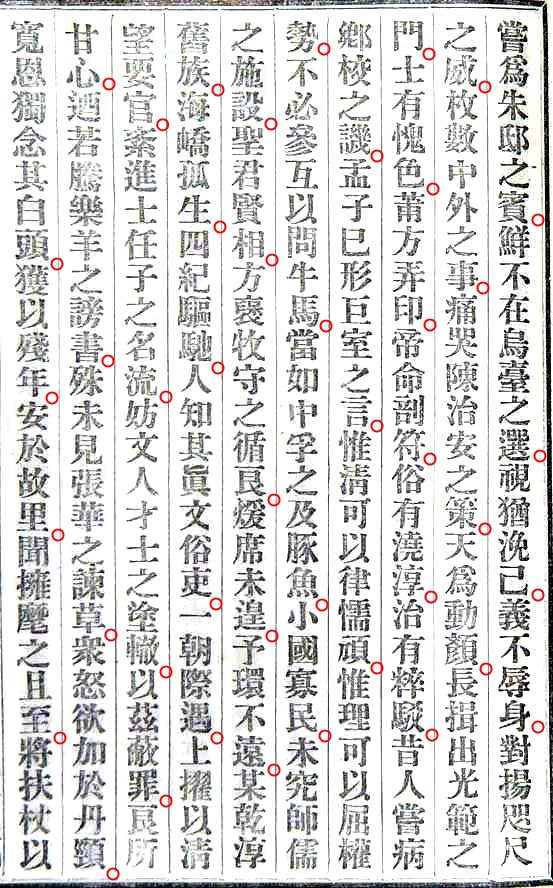 嘗爲朱邸之賓鮮不在烏臺之選視猶浼己義不辱身對揚咫尺
之威枚數中外之事痛哭陳治安之策天爲動顏長揖出光範之
門士有愧色莆方弄印帝命剖符俗有澆淳治有粹駁昔人嘗病
鄉校之譏孟子已形巨室之言惟淸可以律懦頑惟理可以屈權
勢不必參互以問牛馬當如中孚之及豚魚小國寡民未究師儒
之施設聖君賢相方褒牧守之循良煖席未遑予環不遠某乾淳
舊族海嶠孤生四紀驅馳人知其眞文俗吏一朝際遇上擢以淸
望要官紊進士任子之名流妨文人才士之塗轍以茲蔽罪良所
甘心迺若騰樂羊之謗書殊未見張華之諫草衆怒欲加於丹頸
寬恩獨念其白頭獲以殘年安於故里聞擁麾之且至將扶杖以